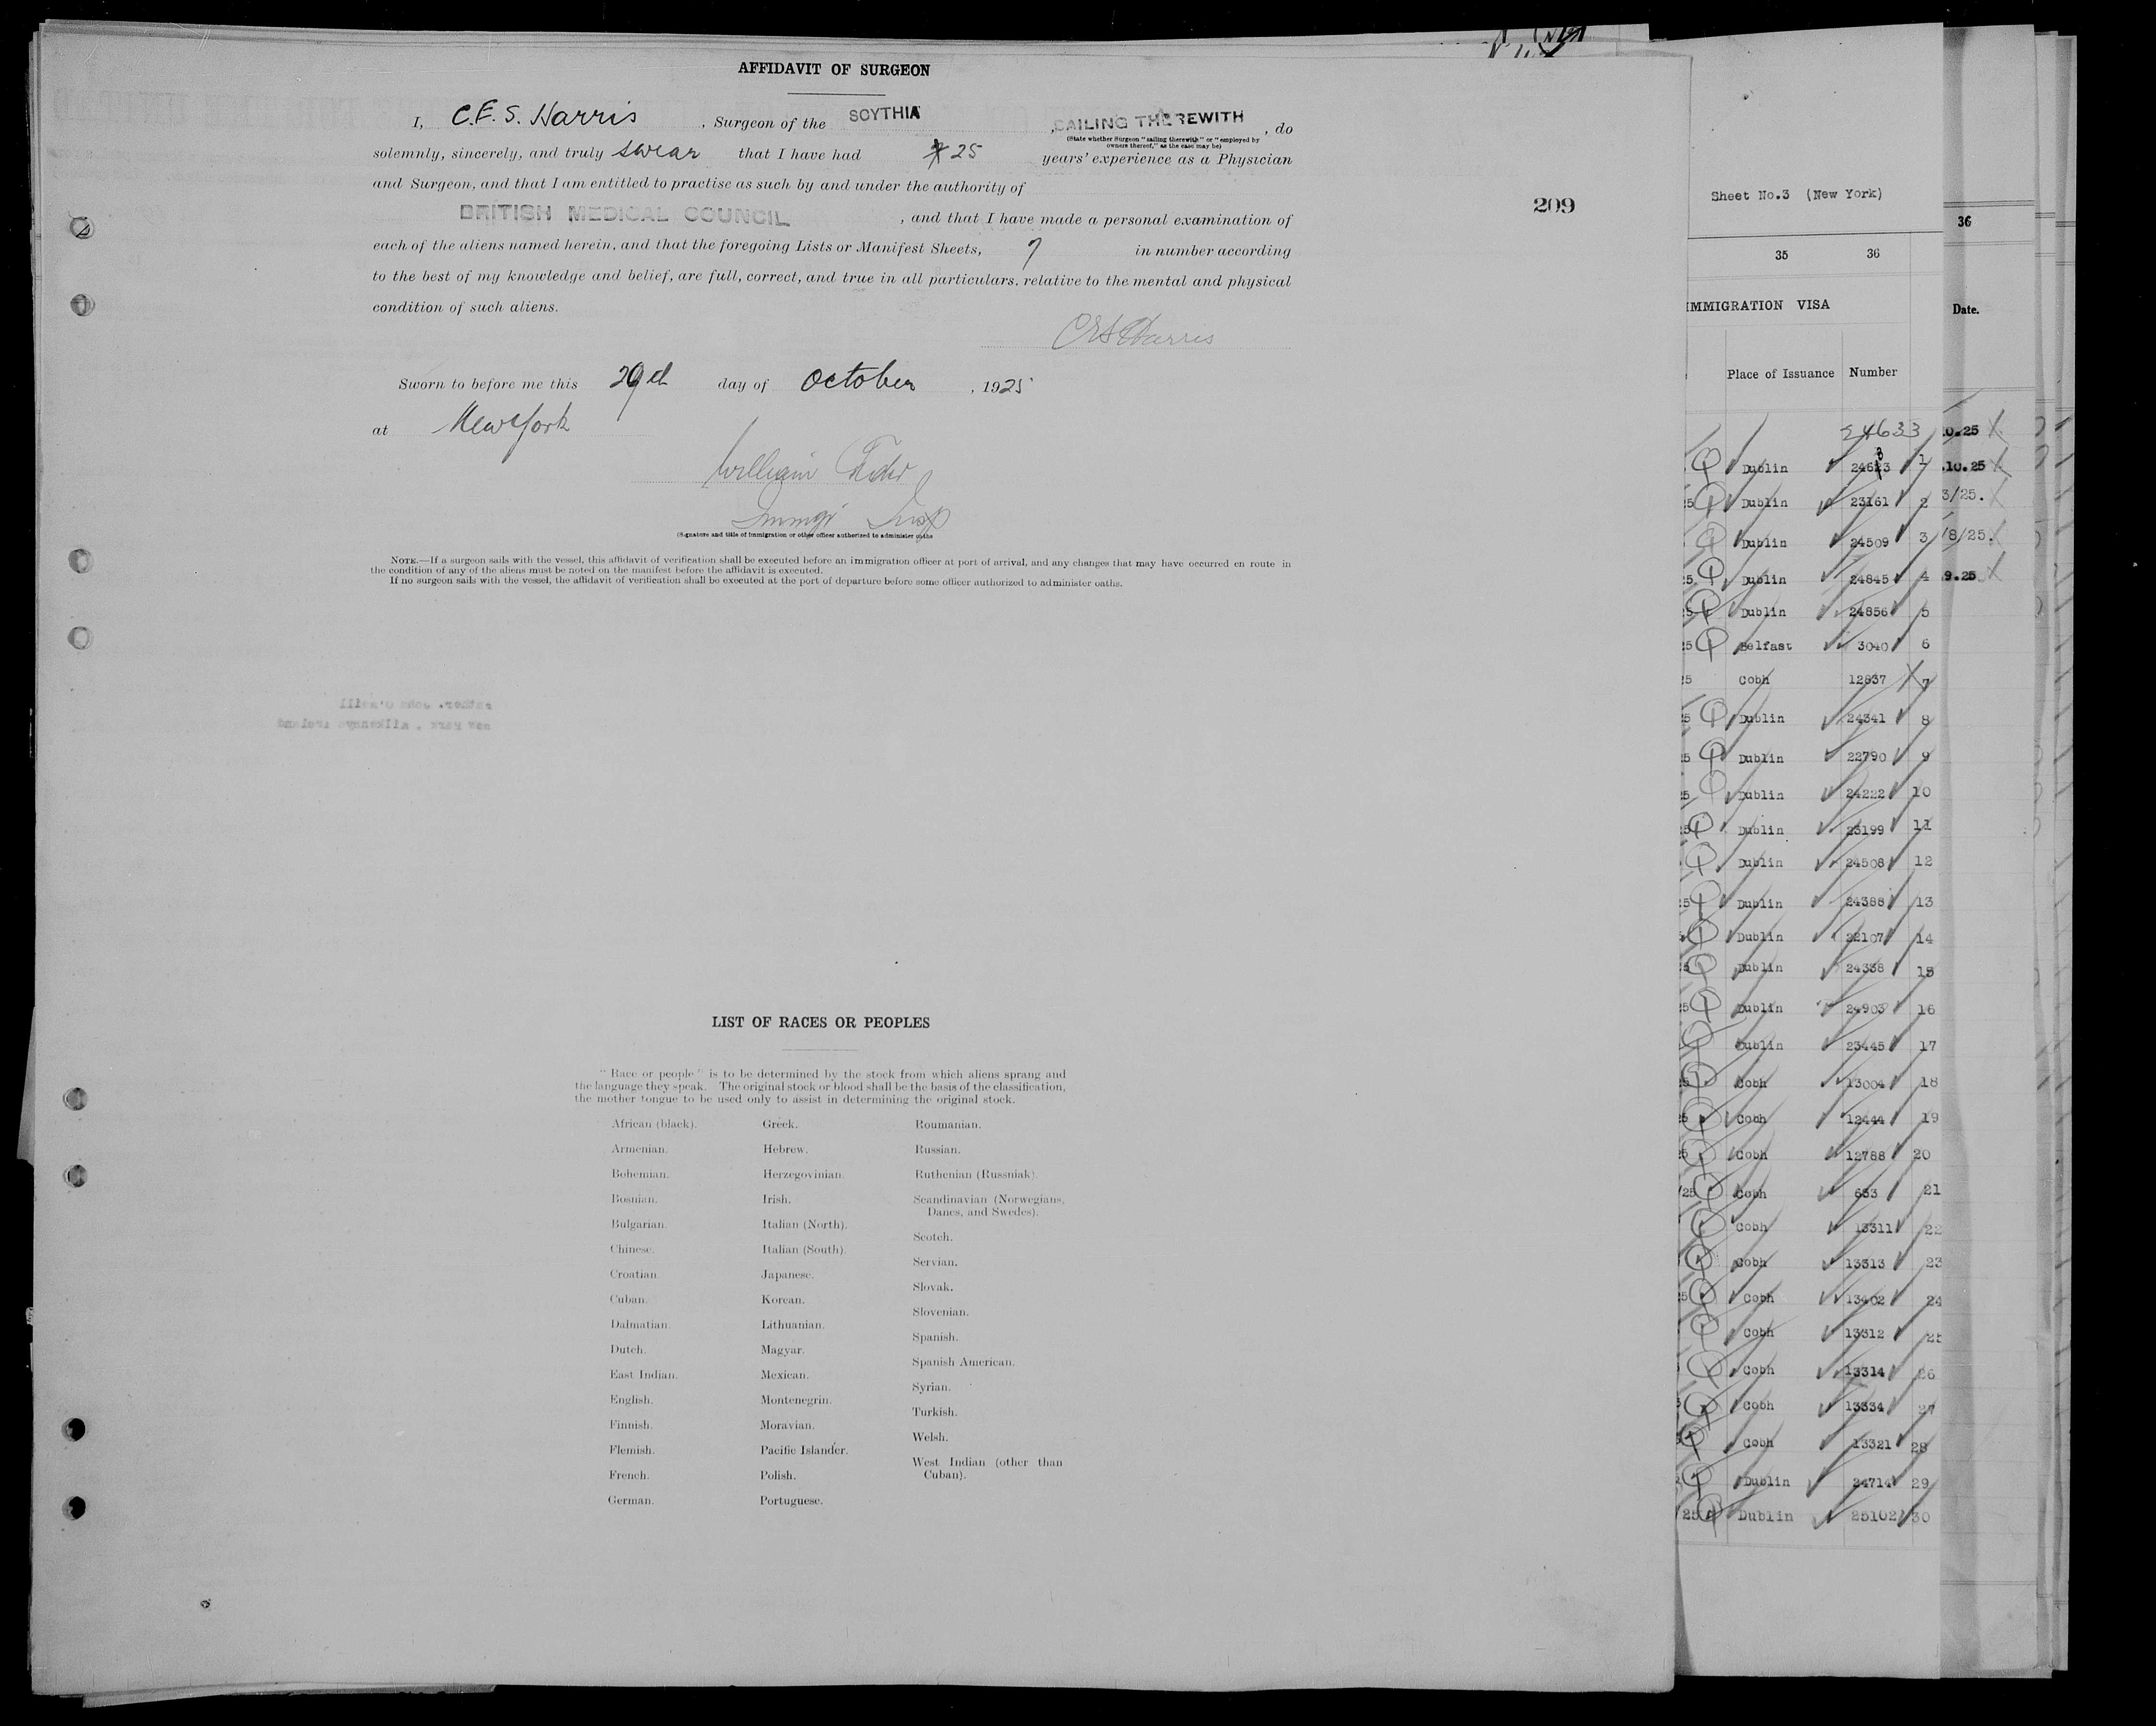 AFFIDAVIT OF SURGEON
I, C.E.S. Harris, Surgeon of the SCYTHIA, SAILING THEREWITH, do
(State whether Surgeon "sailing therewith" or "employed by
owners thereof," as the case may be)
solemnly, sincerely, and truly swear that I have had 25 years' experience as a Physician
and Surgeon, and that I am entitled to practise as such by and under the authority of
BRITISH MEDICAL COUNCIL, and that I have made a personal examination of
each of the aliens named herein, and that the foregoing Lists or Manifest Sheets, 7 in number according
to the best of my knowledge and belief, are full, correct, and true in all particulars, relative to the mental and physical
condition of such aliens.
CES Harris
Sworn to before me this 29th day of October, 1925
at New York
William
Immgr Insp
(Signature and title of immigration or other officer authorized to administer oaths
NOTE.—If a surgeon sails with the vessel, this affidavit of verification shall be executed before an immigration officer at port of arrival, and any changes that may have occurred en route in
the condition of any of the aliens must be noted on the manifest before the affidavit is executed.
If no surgeon sails with the vessel, the affidavit of verification shall be executed at the port of departure before some officer authorized to administer oaths.
209
LIST OF RACES OR PEOPLES
"Race or people" is to be determined by the stock from which aliens sprang and
the language they speak. The original stock or blood shall be the basis of the classification,
the mother tongue to be used only to assist in determining the original stock.
African (black).
Armenian.
Bohemian.
Bosnian.
Bulgarian.
Chinese.
Croatian.
Cuban.
Dalmatian.
Dutch.
East Indian.
English.
Finnish.
Flemish.
French.
German.
Greek.
Hebrew.
Herzegovinian.
Irish.
Italian (North).
Italian (South).
Japanese.
Korean.
Lithuanian.
Magyar.
Mexican.
Montenegrin.
Moravian.
Pacific Islander.
Polish.
Portuguese.
Roumanian.
Russian.
Ruthenian (Russniak).
Scandinavian (Norwegians,
Danes, and Swedes).
Scotch.
Servian.
Slovak.
Slovenian.
Spanish.
Spanish American.
Syrian.
Turkish.
Welsh.
West Indian (other than
Cuban).
Sheet No.3 (New York)
35 36
IMMIGRATION VISA
Place of Issuance Number
24633
Dublin 24623 1
Dublin 23161 2
Dublin 24509 3
Dublin 24845 4
Dublin 24856 5
Belfast 3040 6
Cobh 12837 7
Dublin 24341 8
Dublin 22790 9
Dublin 24222 10
Dublin 23199 11
Dublin 24508 12
Dublin 24388 13
Dublin 22107 14
Dublin 24338 15
Dublin 24903 16
Dublin 23445 17
Cobh 13004 18
Cobh 12444 19
Cobh 12788 20
Cobh 653 21
Cobh 13311 22
Cobh 13313 23
Cobh 13402 24
Cobh 13312 25
Cobh 13314 26
Cobh 13334 27
Cobh 13321 28
Dublin 24714 29
Dublin 25102 30
36
Date.
0.25
.10.25
3/25.
/8/25.
9.25